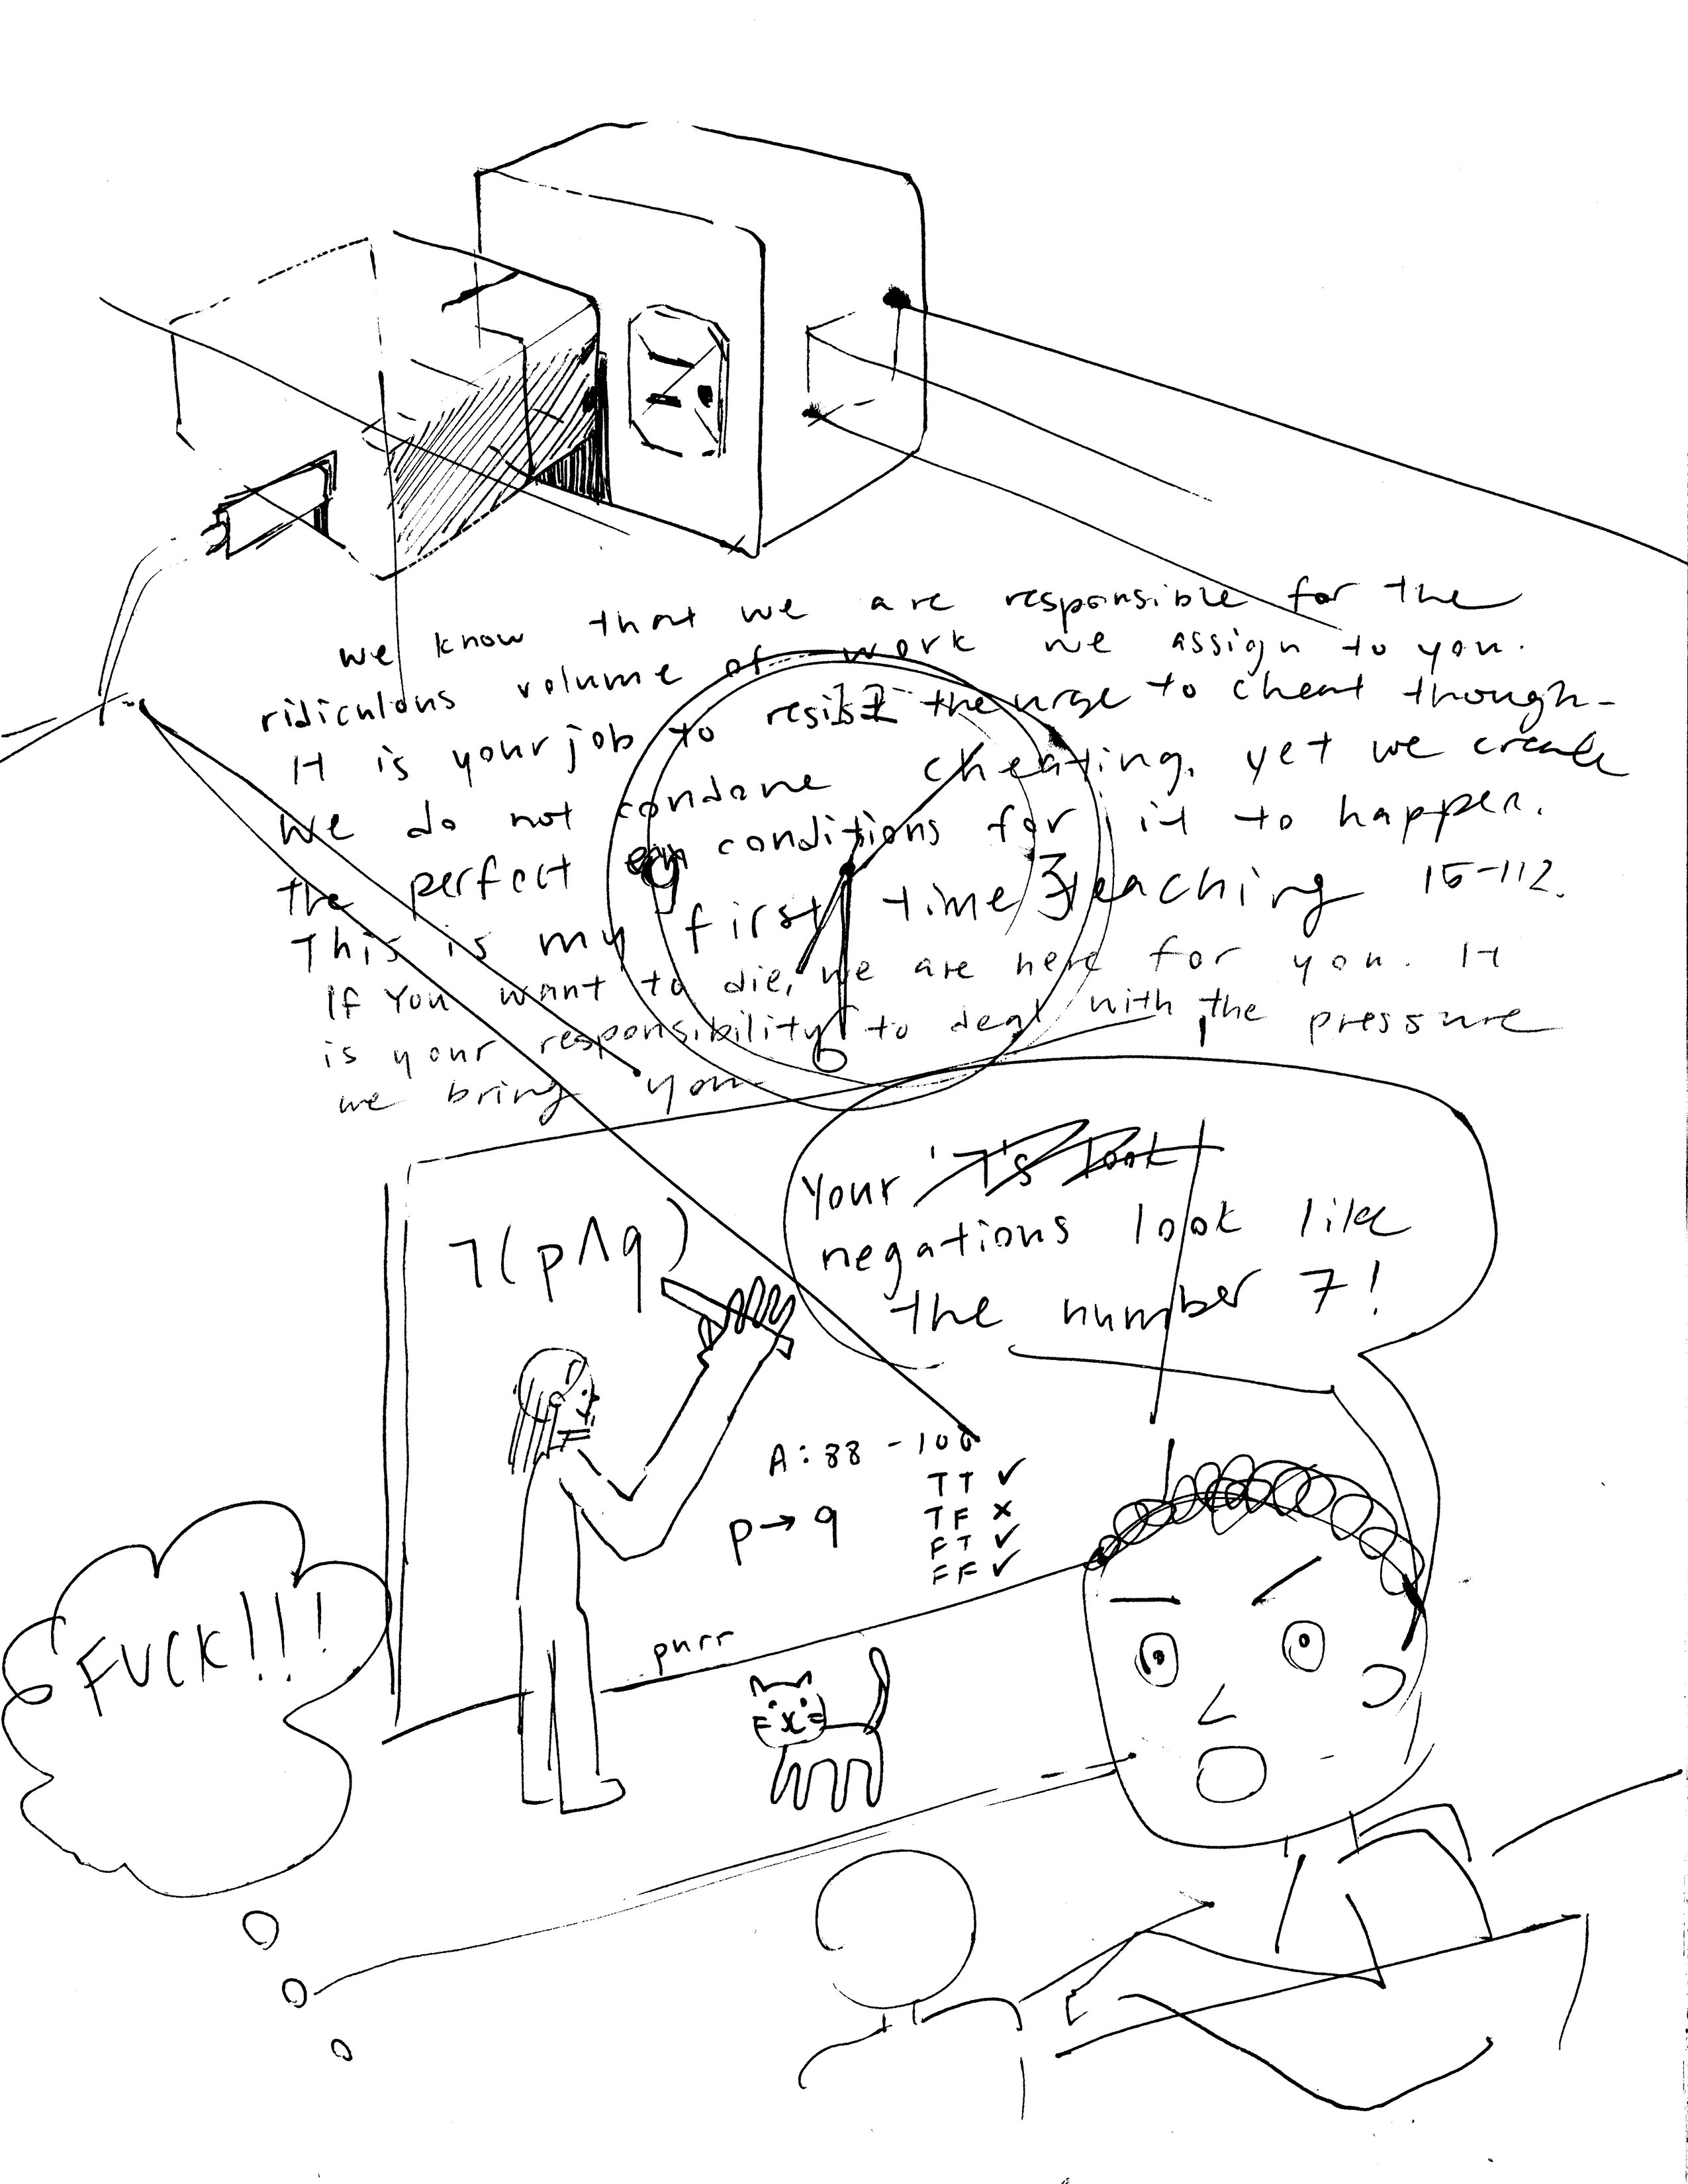 we know that we are responsible for the
ridiculous volume of work we assign to you.
It is your job to resist the urge to cheat though-
we do not condone cheating, yet we create
the perfect conditions for it to happen.
This is my first time teaching 15-112.
If you want to die, we are here for you. It
is your responsibility to deal with the pressure
we bring you
12
9
3
6
Your 7's look
negations look like
the number 7!
¬(p∧q)
A: 88 - 100
TT ✓
TF x
p→q
FT ✓
FF ✓
FUCK!!!
purr